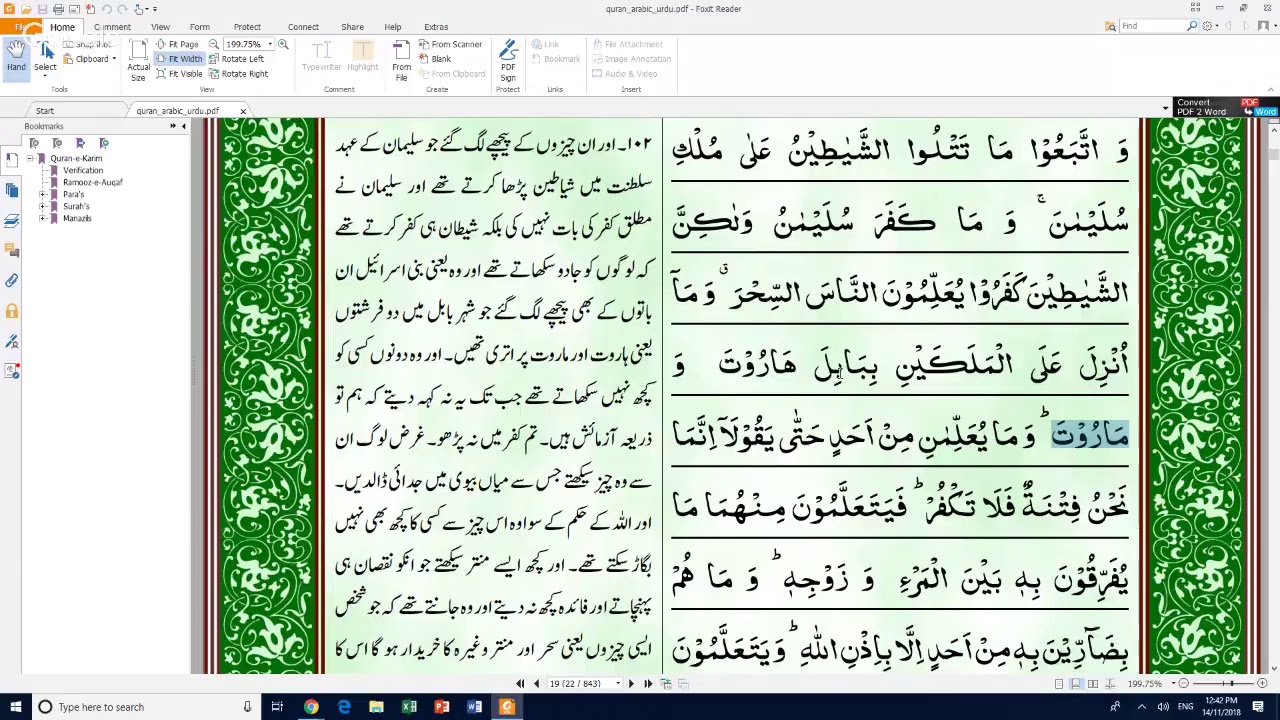 quran_arabic_urdu.pdf - Foxit Reader
File Home Comment View Form Protect Connect Share Help Extras
Find
Hand
Select
Snapshot
Clipboard
Tools
Actual Size
Fit Page
Fit Width
Fit Visible
199.75%
Rotate Left
Rotate Right
View
Typewriter
Highlight
Comment
From File
From Scanner
Blank
From Clipboard
Create
PDF Sign
Protect
Link
Bookmark
Links
File Attachment
Image Annotation
Audio & Video
Insert
Start
quran_arabic_urdu.pdf
Convert PDF
PDF 2 Word Word
Bookmarks
Quran-e-Karim
Verification
Ramooz-e-Auqaf
Para's
Surah's
Manazils
وَ اتَّبَعُوْا مَا تَتْلُوا الشَّيٰطِيْنُ عَلٰى مُلْكِ
سُلَيْمٰنَ ۚ وَ مَا كَفَرَ سُلَيْمٰنُ وَلٰكِنَّ
الشَّيٰطِيْنَ كَفَرُوْا يُعَلِّمُوْنَ النَّاسَ السِّحْرَ ۗ وَ مَاۤ
اُنْزِلَ عَلَى الْمَلَكَيْنِ بِبَابِلَ هَارُوْتَ وَ
مَارُوْتَ ؕ وَ مَا يُعَلِّمٰنِ مِنْ اَحَدٍ حَتّٰى يَقُوْلَاۤ اِنَّمَا
نَحْنُ فِتْنَةٌ فَلَا تَكْفُرْ ؕ فَيَتَعَلَّمُوْنَ مِنْهُمَا مَا
يُفَرِّقُوْنَ بِهٖ بَيْنَ الْمَرْءِ وَ زَوْجِهٖ ؕ وَ مَا هُمْ
بِضَآرِّيْنَ بِهٖ مِنْ اَحَدٍ اِلَّا بِاِذْنِ اللّٰهِ ؕ وَ يَتَعَلَّمُوْنَ
۱۰۲۔ اور ان چیزوں کے پیچھے لگ گئے جو سلیمان کے عہد
سلطنت میں شیاطین پڑھا کرتے تھے اور سلیمان نے
مطلق کفر کی بات نہیں کی بلکہ شیطان ہی کفر کرتے تھے
کہ لوگوں کو جادو سکھاتے تھے اور وہ یعنی بنی اسرائیل ان
باتوں کے بھی پیچھے لگ گئے جو شہر بابل میں دو فرشتوں
یعنی ہاروت اور ماروت پر اتری تھیں۔ اور وہ دونوں کسی کو
کچھ نہیں سکھاتے تھے جب تک یہ نہ کہہ دیتے کہ ہم تو
ذریعہ آزمائش ہیں۔ تم کفر میں نہ پڑھو۔ غرض لوگ ان
سے وہ چیز سیکھتے جس سے میاں بیوی میں جدائی ڈالدیں۔
اور اللہ کے حکم کے سوا وہ اس چیز سے کسی کا کچھ بھی نہیں
بگاڑ سکتے تھے۔ اور کچھ ایسے منتر سیکھتے جو انکو نقصان ہی
پہنچاتے اور فائدہ کچھ نہ دیتے اور وہ جانتے تھے کہ جو شخص
ایسی چیزوں یعنی سحر اور منتر وغیرہ کا خریدار ہو گا اس کا
19 (22 / 843)
199.75%
Type here to search
ENG
12:42 PM
14/11/2018